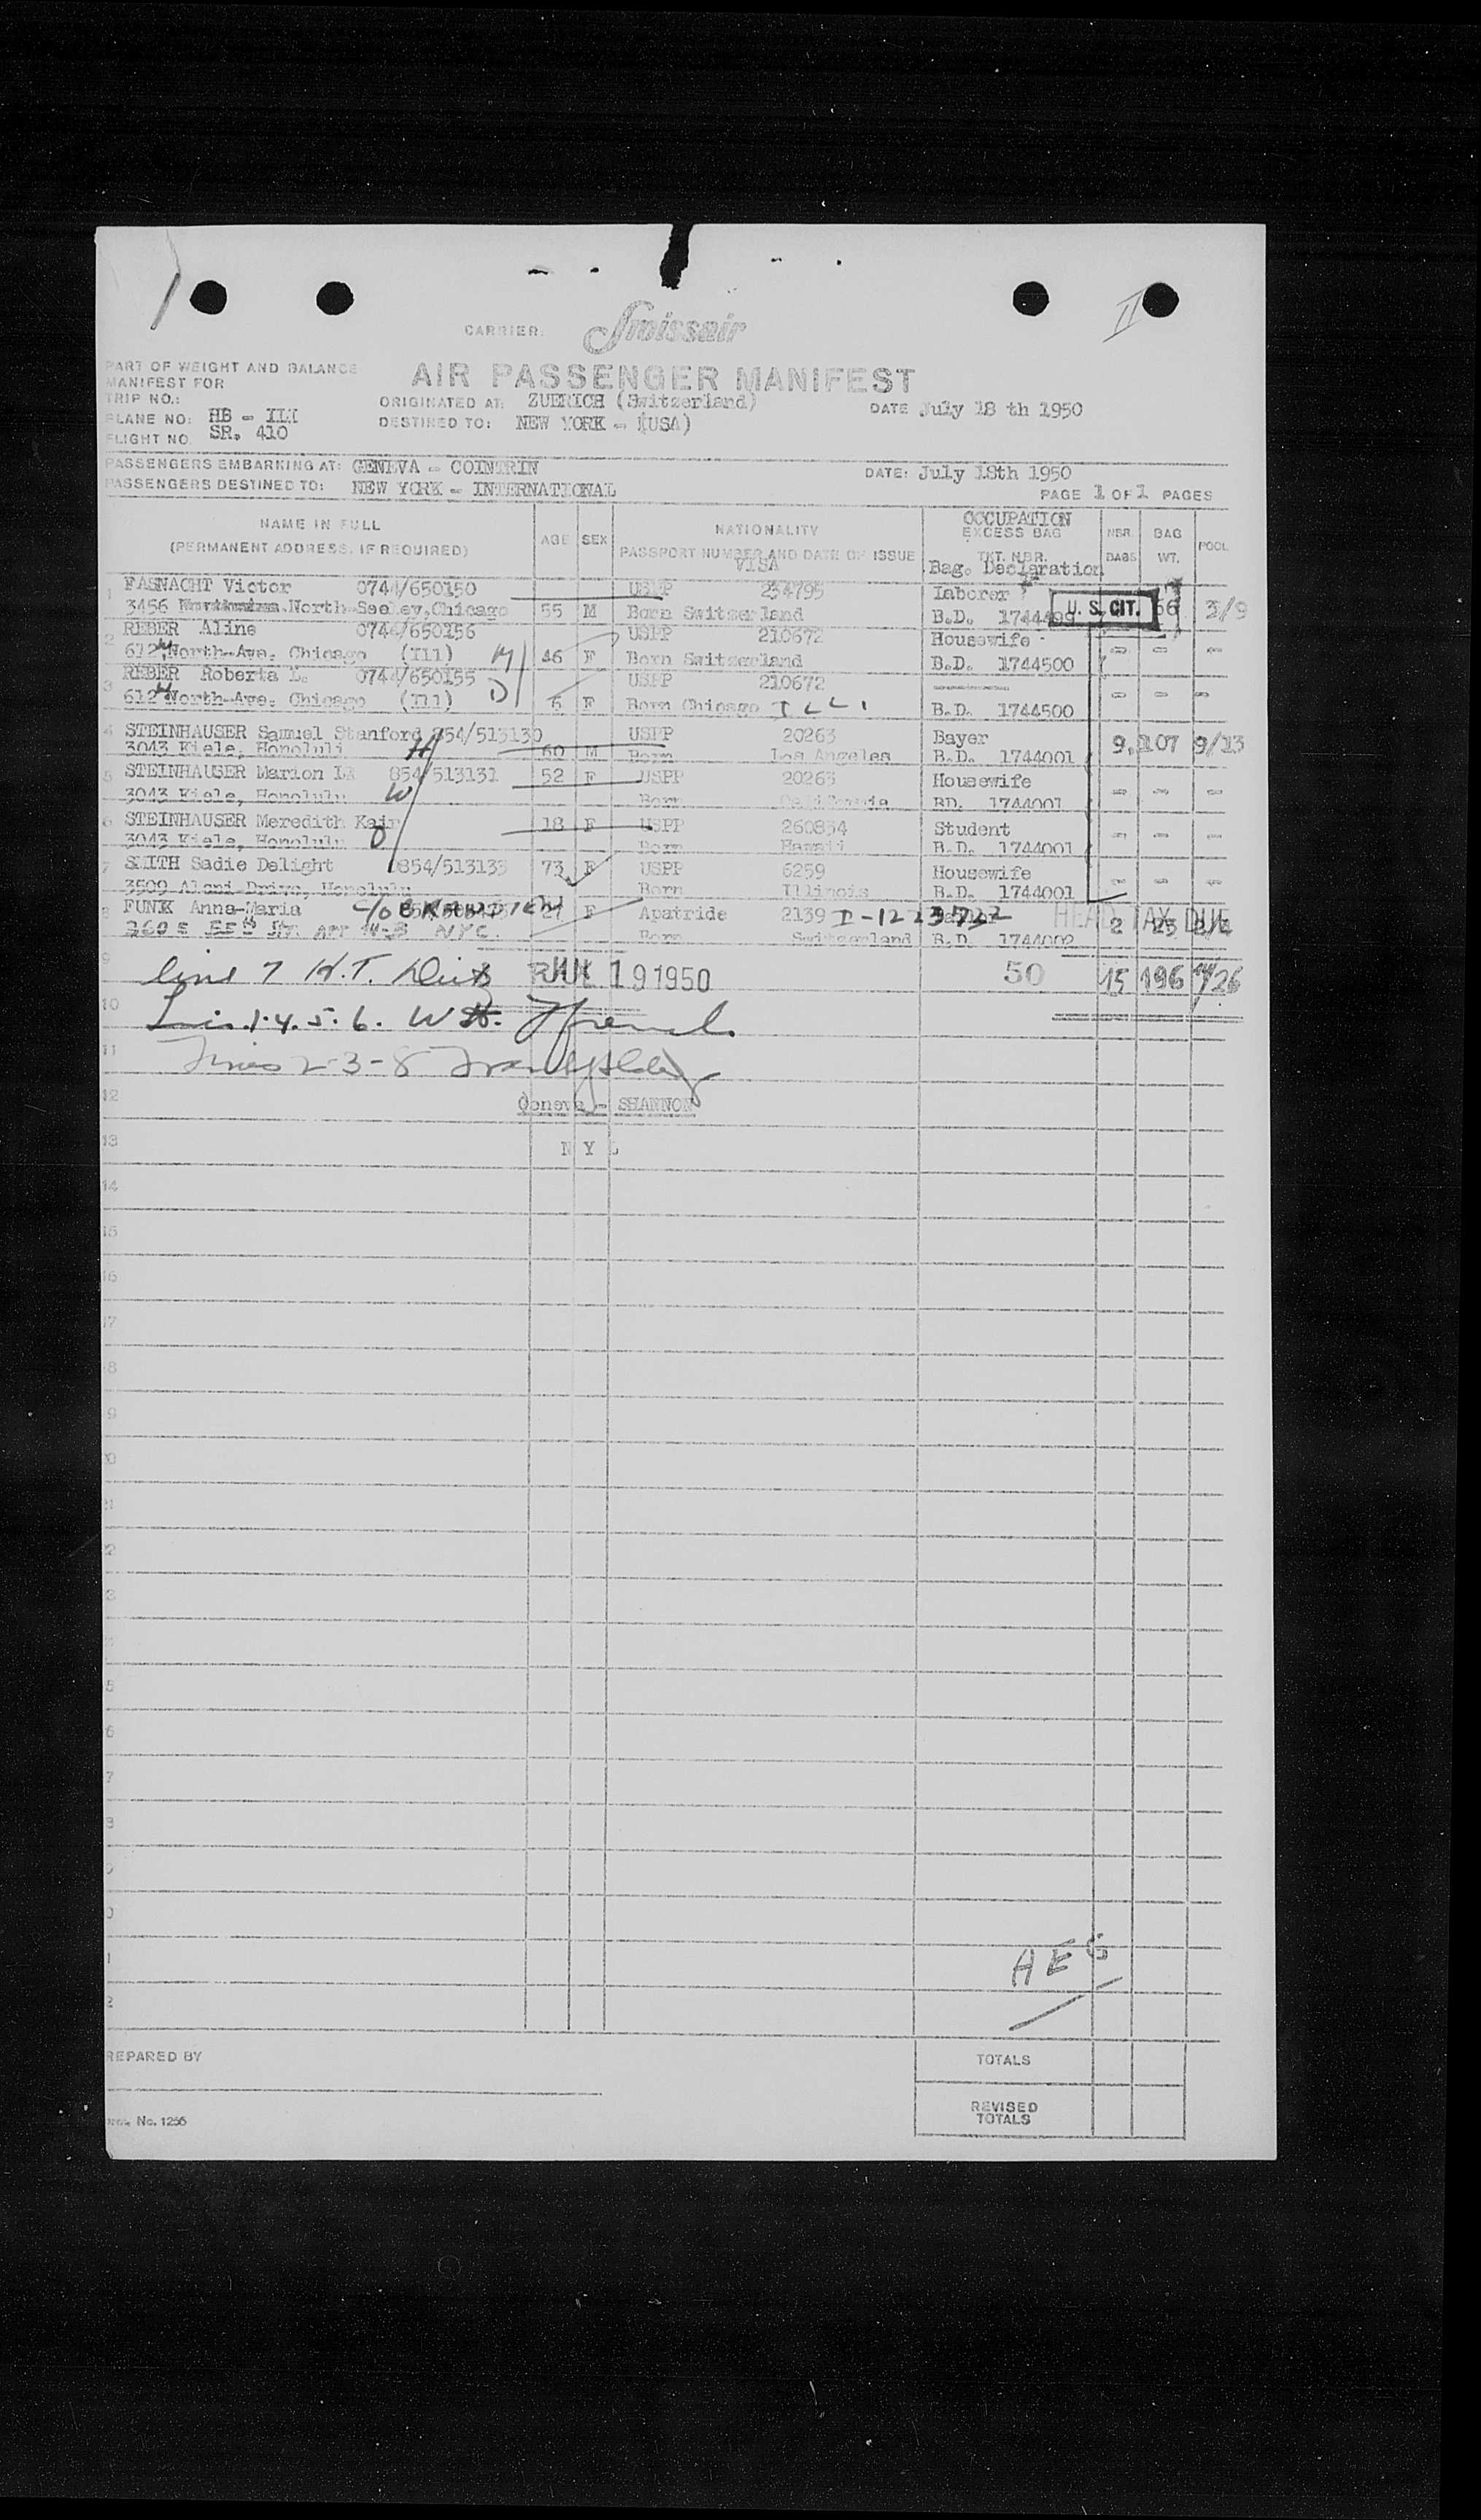 CARRIER: Swissair
PART OF WEIGHT AND BALANCE
MANIFEST FOR
AIR PASSENGER MANIFEST
TRIP NO.:
ORIGINATED AT: ZUERICH (Switzerland)
DATE July 18 th 1950
PLANE NO: HB - ILI
DESTINED TO: NEW YORK - (USA)
FLIGHT NO. SR. 410
PASSENGERS EMBARKING AT: GENEVA - COINTRIN
DATE: July 18th 1950
PASSENGERS DESTINED TO: NEW YORK - INTERNATIONAL
PAGE 1 OF 1 PAGES
NAME IN FULL
(PERMANENT ADDRESS, IF REQUIRED)
AGE SEX
NATIONALITY
PASSPORT NUMBER AND DATE OF ISSUE
VISA
OCCUPATION
EXCESS BAG
TKT. NBR.
Bag. Declaration
NBR. BAGS
BAG WT.
POOL
1 FASNACHT Victor 0744/650150 USPP 234795 Laborer
3456 North Seeley, Chicago 55 M Born Switzerland B.D. 1744499 U. S. CIT. 66 3/9
2 REBER Aline 0744/650156 USPP 210672 Housewife
612 North-Ave. Chicago (Ill) M 46 F Born Switzerland B.D. 1744500 - - -
3 REBER Roberta L. 0744/650155 USPP 210672
612 North-Ave. Chicago (Ill) D 6 F Born Chicago ILL. B.D. 1744500 - - -
4 STEINHAUSER Samuel Stanford 854/513130 USPP 20263 Bayer
3043 Kiele, Honoluli H 60 M Born Los Angeles B.D. 1744001 9 107 9/13
5 STEINHAUSER Marion 854/513131 52 F USPP 20263 Housewife
3043 Kiele, Honolulu W Born California BD. 1744001 - - -
6 STEINHAUSER Meredith 18 F USPP 260834 Student
3043 Kiele, Honolulu D Born Hawaii B.D. 1744001 - - -
7 SMITH Sadie Delight 854/513133 73 F USPP 6259 Housewife
3509 Alani Drive, Honolulu Born Illinois B.D. 1744001 - - -
8 FUNK Anna-Maria C/O 27 F Apatride 2139 I-1223732 HEAD TAX DUE 2 23 2/4
360 E 55th St. APT 14-B NYC. Born Switzerland B.D. 1744002
9 line 7 H.T. 19 1950 50 15 196 26
10 1. 4. 5. 6.
11 Lines 2-3-8
12 Geneva - SHANNON
13 N Y L
14
15
16
17
AEG
PREPARED BY
TOTALS
REVISED
TOTALS
No. 1256